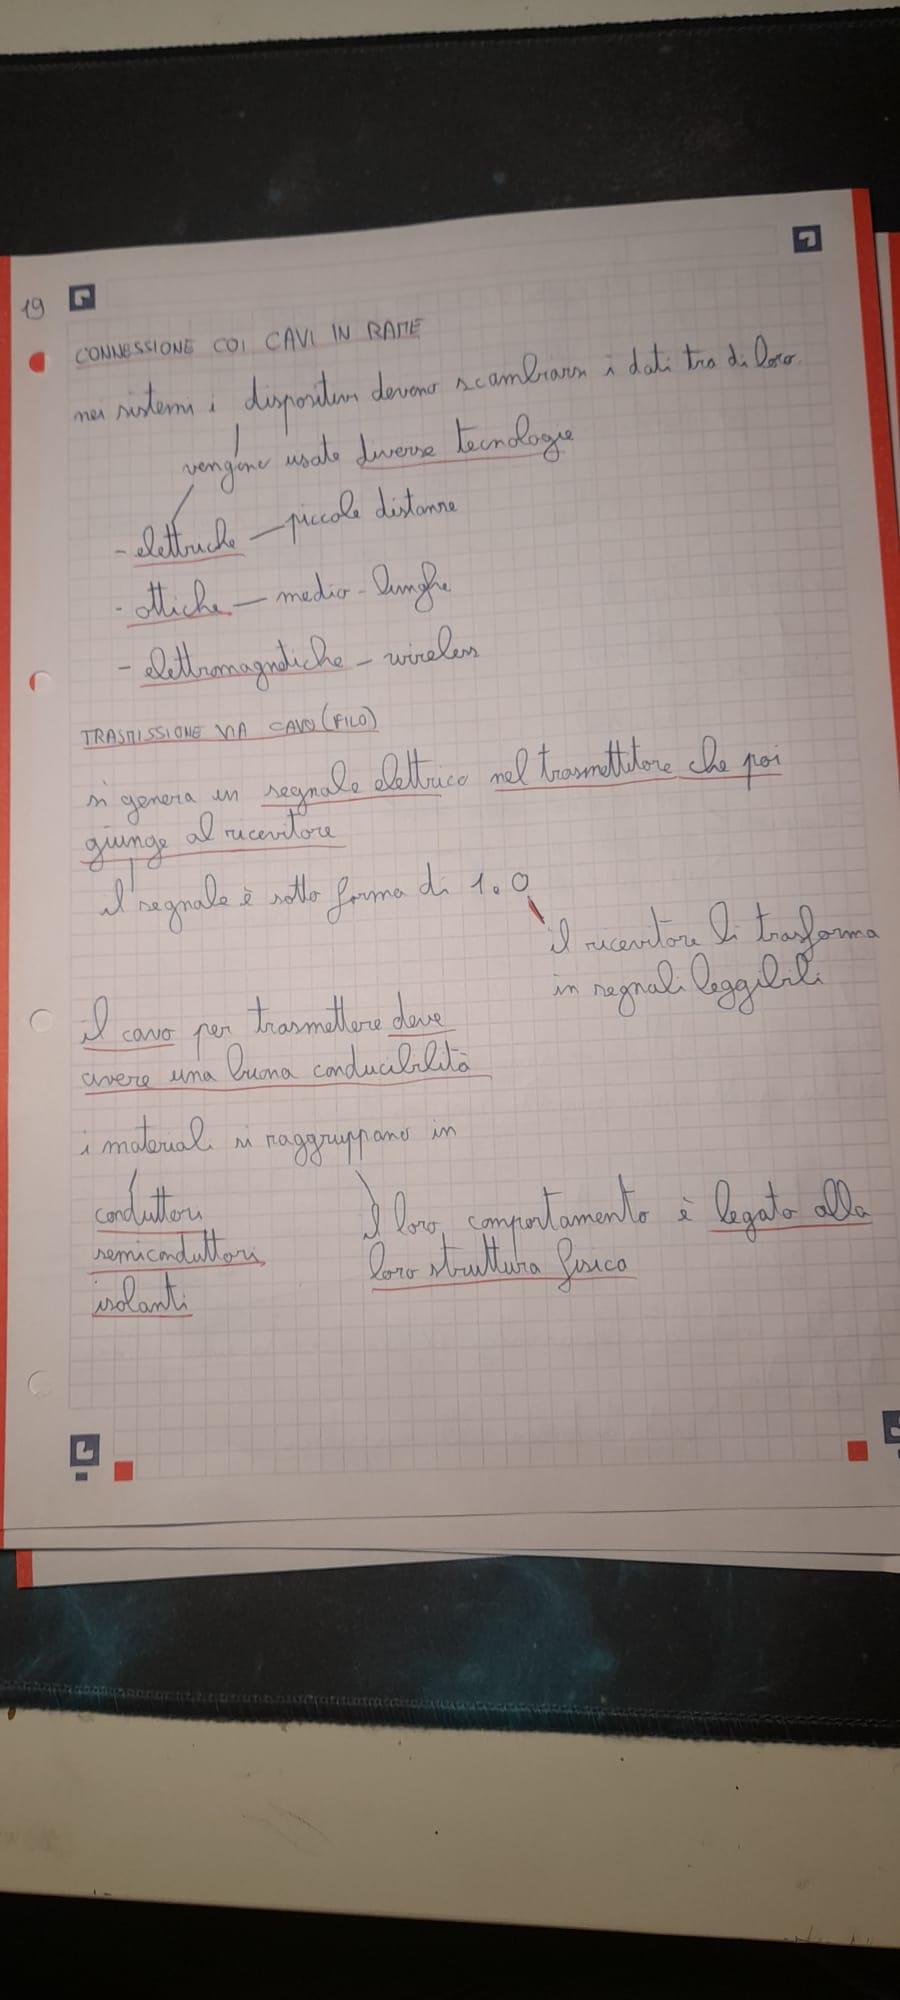 19
CONNESSIONE COI CAVI IN RAME
nei sistemi i dispositivi devono scambiarsi i dati tra di loro
vengono usate diverse tecnologie
- elettriche — piccole distanze
- ottiche — medio-lunghe
- elettromagnetiche - wireless
TRASMISSIONE VIA CAVO (FILO)
si genera un segnale elettrico nel trasmettitore che poi
giunge al ricevitore
il segnale è sotto forma di 1 o 0
il ricevitore li trasforma
in segnali leggibili
il cavo per trasmettere deve
avere una buona conducibilità
i materiali si raggruppano in
conduttori
semiconduttori
isolanti
il loro comportamento è legato alla
loro struttura fisica